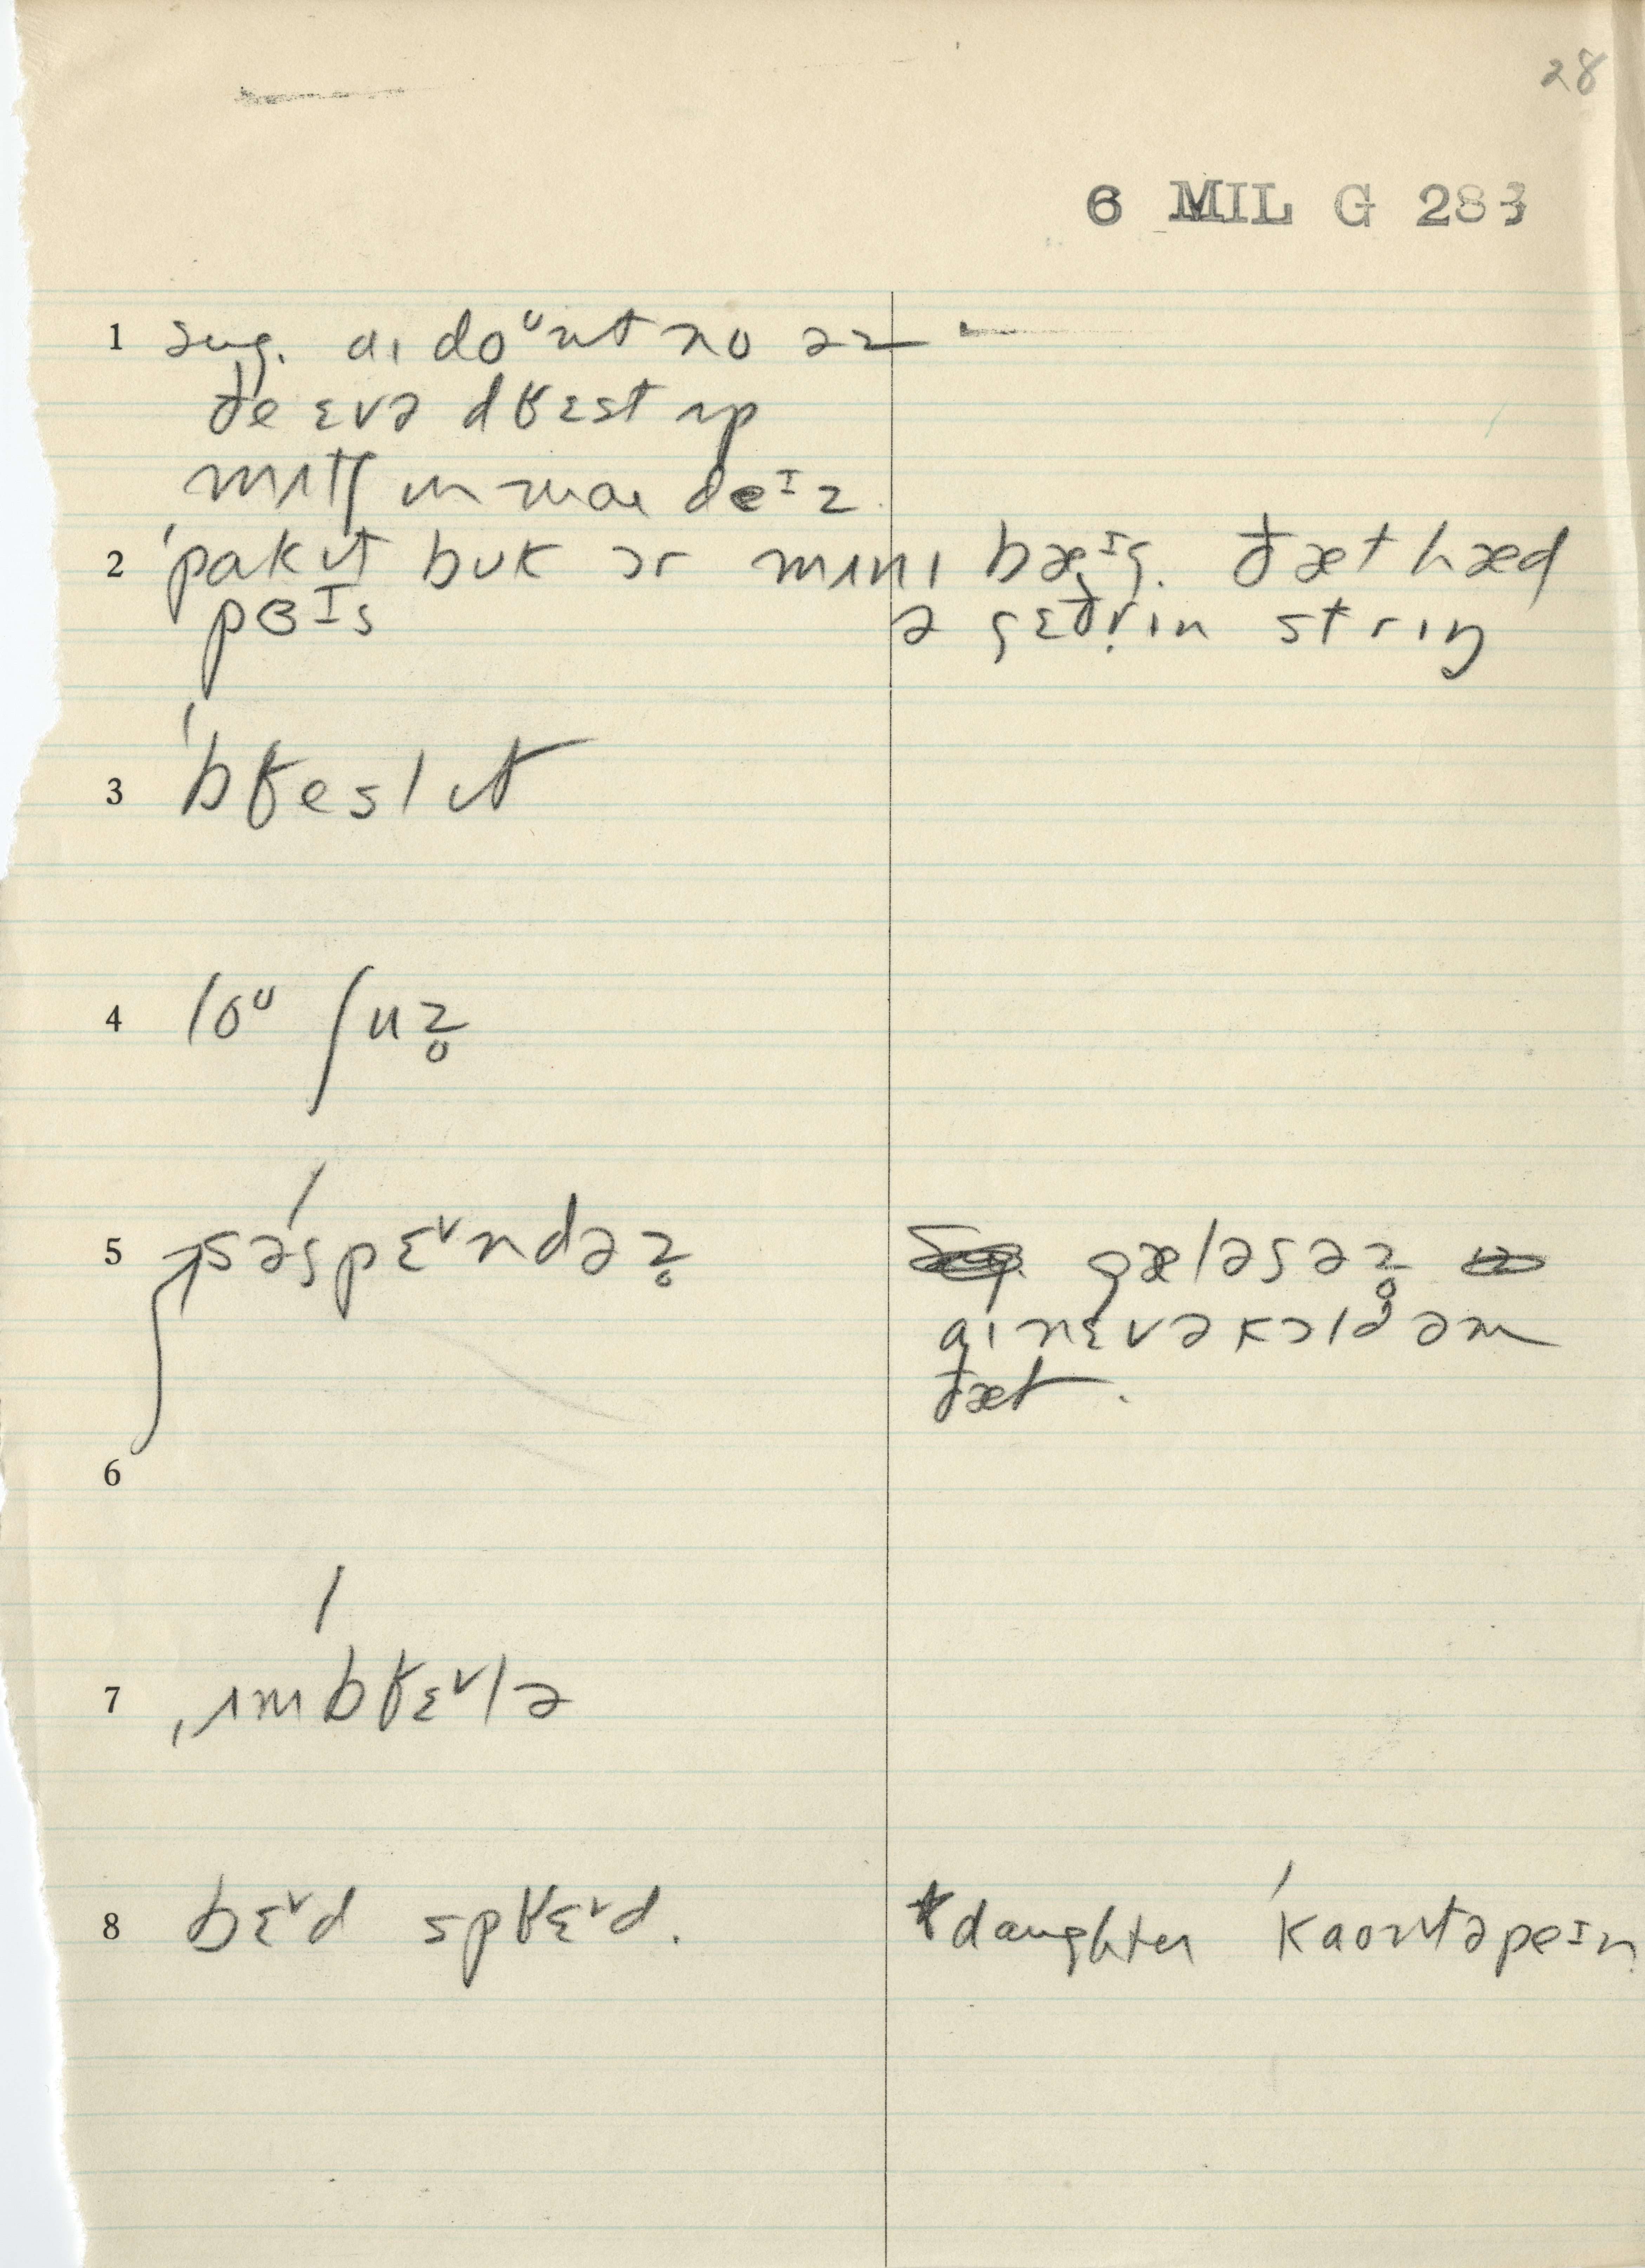 28
6 MIL G 283
1 sug. aɪ doᶷnt no əz
ðe ɛvə dʁɛst ʌp
mʌtʃ ɪn maɪ deᶦz.
2 ˈpakɪt bʊk ɔr mʌnɪ bæᶦg. ðæt hæd
pɜᶦs ə gɛðrɪn strɪŋ
3 ˈbʁeslɪt
4 loᶷ ʃuz̥
5 səˈspɛᵛndəz̥ gæləsəz̥
aɪ nɛvə kɔld əm
ðæt.
6
7 ˌʌmˈbʁɛᵛlə
8 bɛᵛd spʁɛᵛd. *daughter ˈkaʊntəpeᶦn